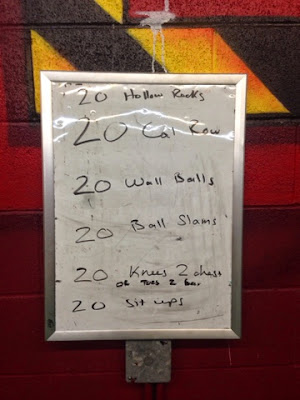 20 Hollow Rocks
20 Cal Row
20 Wall Balls
20 Ball Slams
20 Knees 2 chest
or Toes 2 Bar
20 Sit ups